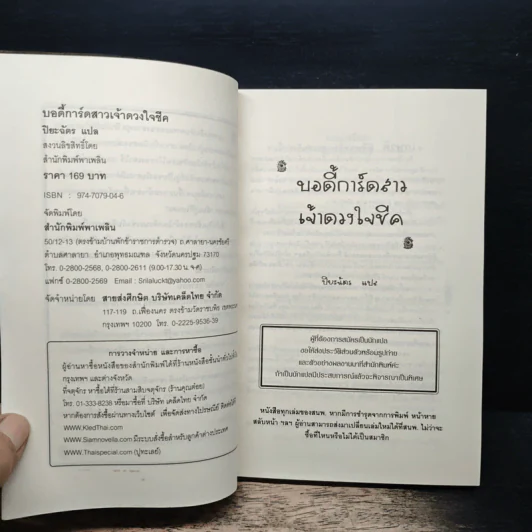 บอดี้การ์ดสาวเจ้าดวงใจชีค
ปิยะฉัตร แปล
สงวนลิขสิทธิ์โดย
สำนักพิมพ์พาเพลิน
ราคา 169 บาท
ISBN : 974-7079-04-6
จัดพิมพ์โดย
สำนักพิมพ์พาเพลิน
50/12-13 (ตรงข้ามบ้านพักข้าราชการตำรวจ) ถ.ศาลายา-นครชัยศรี
ตำบลศาลายา อำเภอพุทธมณฑล จังหวัดนครปฐม 73170
โทร. 0-2800-2568, 0-2800-2611 (9.00-17.30 น. จ-ศ)
แฟกซ์ 0-2800-2569 Email : Srilaluckt@yahoo.com
จัดจำหน่ายโดย สายส่งศึกษิต บริษัทเคล็ดไทย จำกัด
117-119 ถ.เฟื่องนคร ตรงข้ามวัดราชบพิธ
กรุงเทพฯ 10200 โทร. 0-2225-9536-39
การวางจำหน่าย และการหาซื้อ
ผู้อ่านหาซื้อหนังสือของสำนักพิมพ์ได้ที่ร้านหนังสือชั้นนำทั่วไป
กรุงเทพฯ และต่างจังหวัด
ที่จตุจักร หาซื้อได้ที่ร้านสามสิบจตุจักร (ร้านคุณต้อย)
โทร. 01-333-8238 หรือมาซื้อที่ บริษัท เคล็ดไทย จำกัด
หากต้องการสั่งซื้อผ่านทางเว็บไซต์ เพื่อจัดส่งทางไปรษณีย์
www.KledThai.com
www.Siamnovella.com มีระบบสั่งซื้อสำหรับลูกค้าต่างประเทศ
www.Thaispecial.com (ปูทะเลย์)
บอดี้การ์ดสาว
เจ้าดวงใจชีค
ปิยะฉัตร แปล
ผู้ที่ต้องการสมัครเป็นนักแปล
ขอให้ส่งประวัติส่วนตัวพร้อมรูปถ่าย
และตัวอย่างผลงานมาที่สำนักพิมพ์ค่ะ
ถ้าเป็นนักแปลมีประสบการณ์แล้วจะพิจารณาเป็นพิเศษ
หนังสือทุกเล่มของสนพ. หากมีการชำรุดจากการพิมพ์ หน้าหาย
สลับหน้า ฯลฯ ผู้อ่านสามารถส่งมาเปลี่ยนเล่มใหม่ได้ที่สนพ. ไม่ว่าจะ
ซื้อที่ไหนหรือไม่ได้เป็นสมาชิก